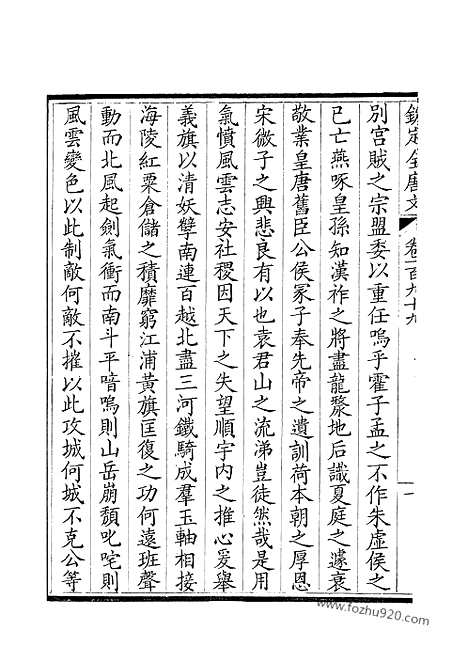 欽定全唐文 卷一百九十九 一
別宫賊之宗盟委以重任嗚乎霍子孟之不作朱虛侯之
已亡燕啄皇孫知漢祚之將盡龍漦地后識夏庭之遽衰
敬業皇唐舊臣公侯冢子奉先帝之遺訓荷本朝之厚恩
宋微子之興悲良有以也袁君山之流涕豈徒然哉是用
氣憤風雲志安社稷因天下之失望順宇内之推心爰舉
義旗以清妖孽南連百越北盡三河鐵騎成羣玉軸相接
海陵紅粟倉儲之積靡窮江浦黄旗匡復之功何遠班聲
動而北風起劍氣衝而南斗平喑嗚則山岳崩頽叱咤則
風雲變色以此制敵何敵不摧以此攻城何城不克公等
www.fozhu920.com